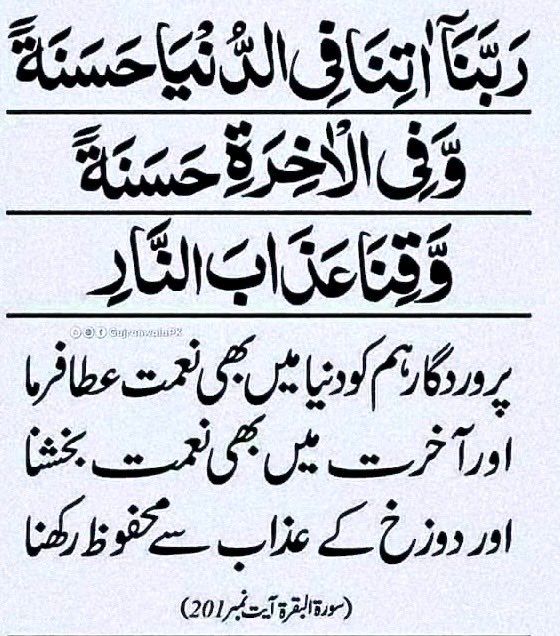 رَبَّنَآ اٰتِنَا فِی الدُّنْیَا حَسَنَةً
وَّ فِی الْاٰخِرَةِ حَسَنَةً
وَّ قِنَا عَذَابَ النَّارِ
GujranwalaPK
پروردگار ہم کو دنیا میں بھی نعمت عطا فرما
اور آخرت میں بھی نعمت بخشنا
اور دوزخ کے عذاب سے محفوظ رکھنا
(سورة البقرة آیت نمبر 201)